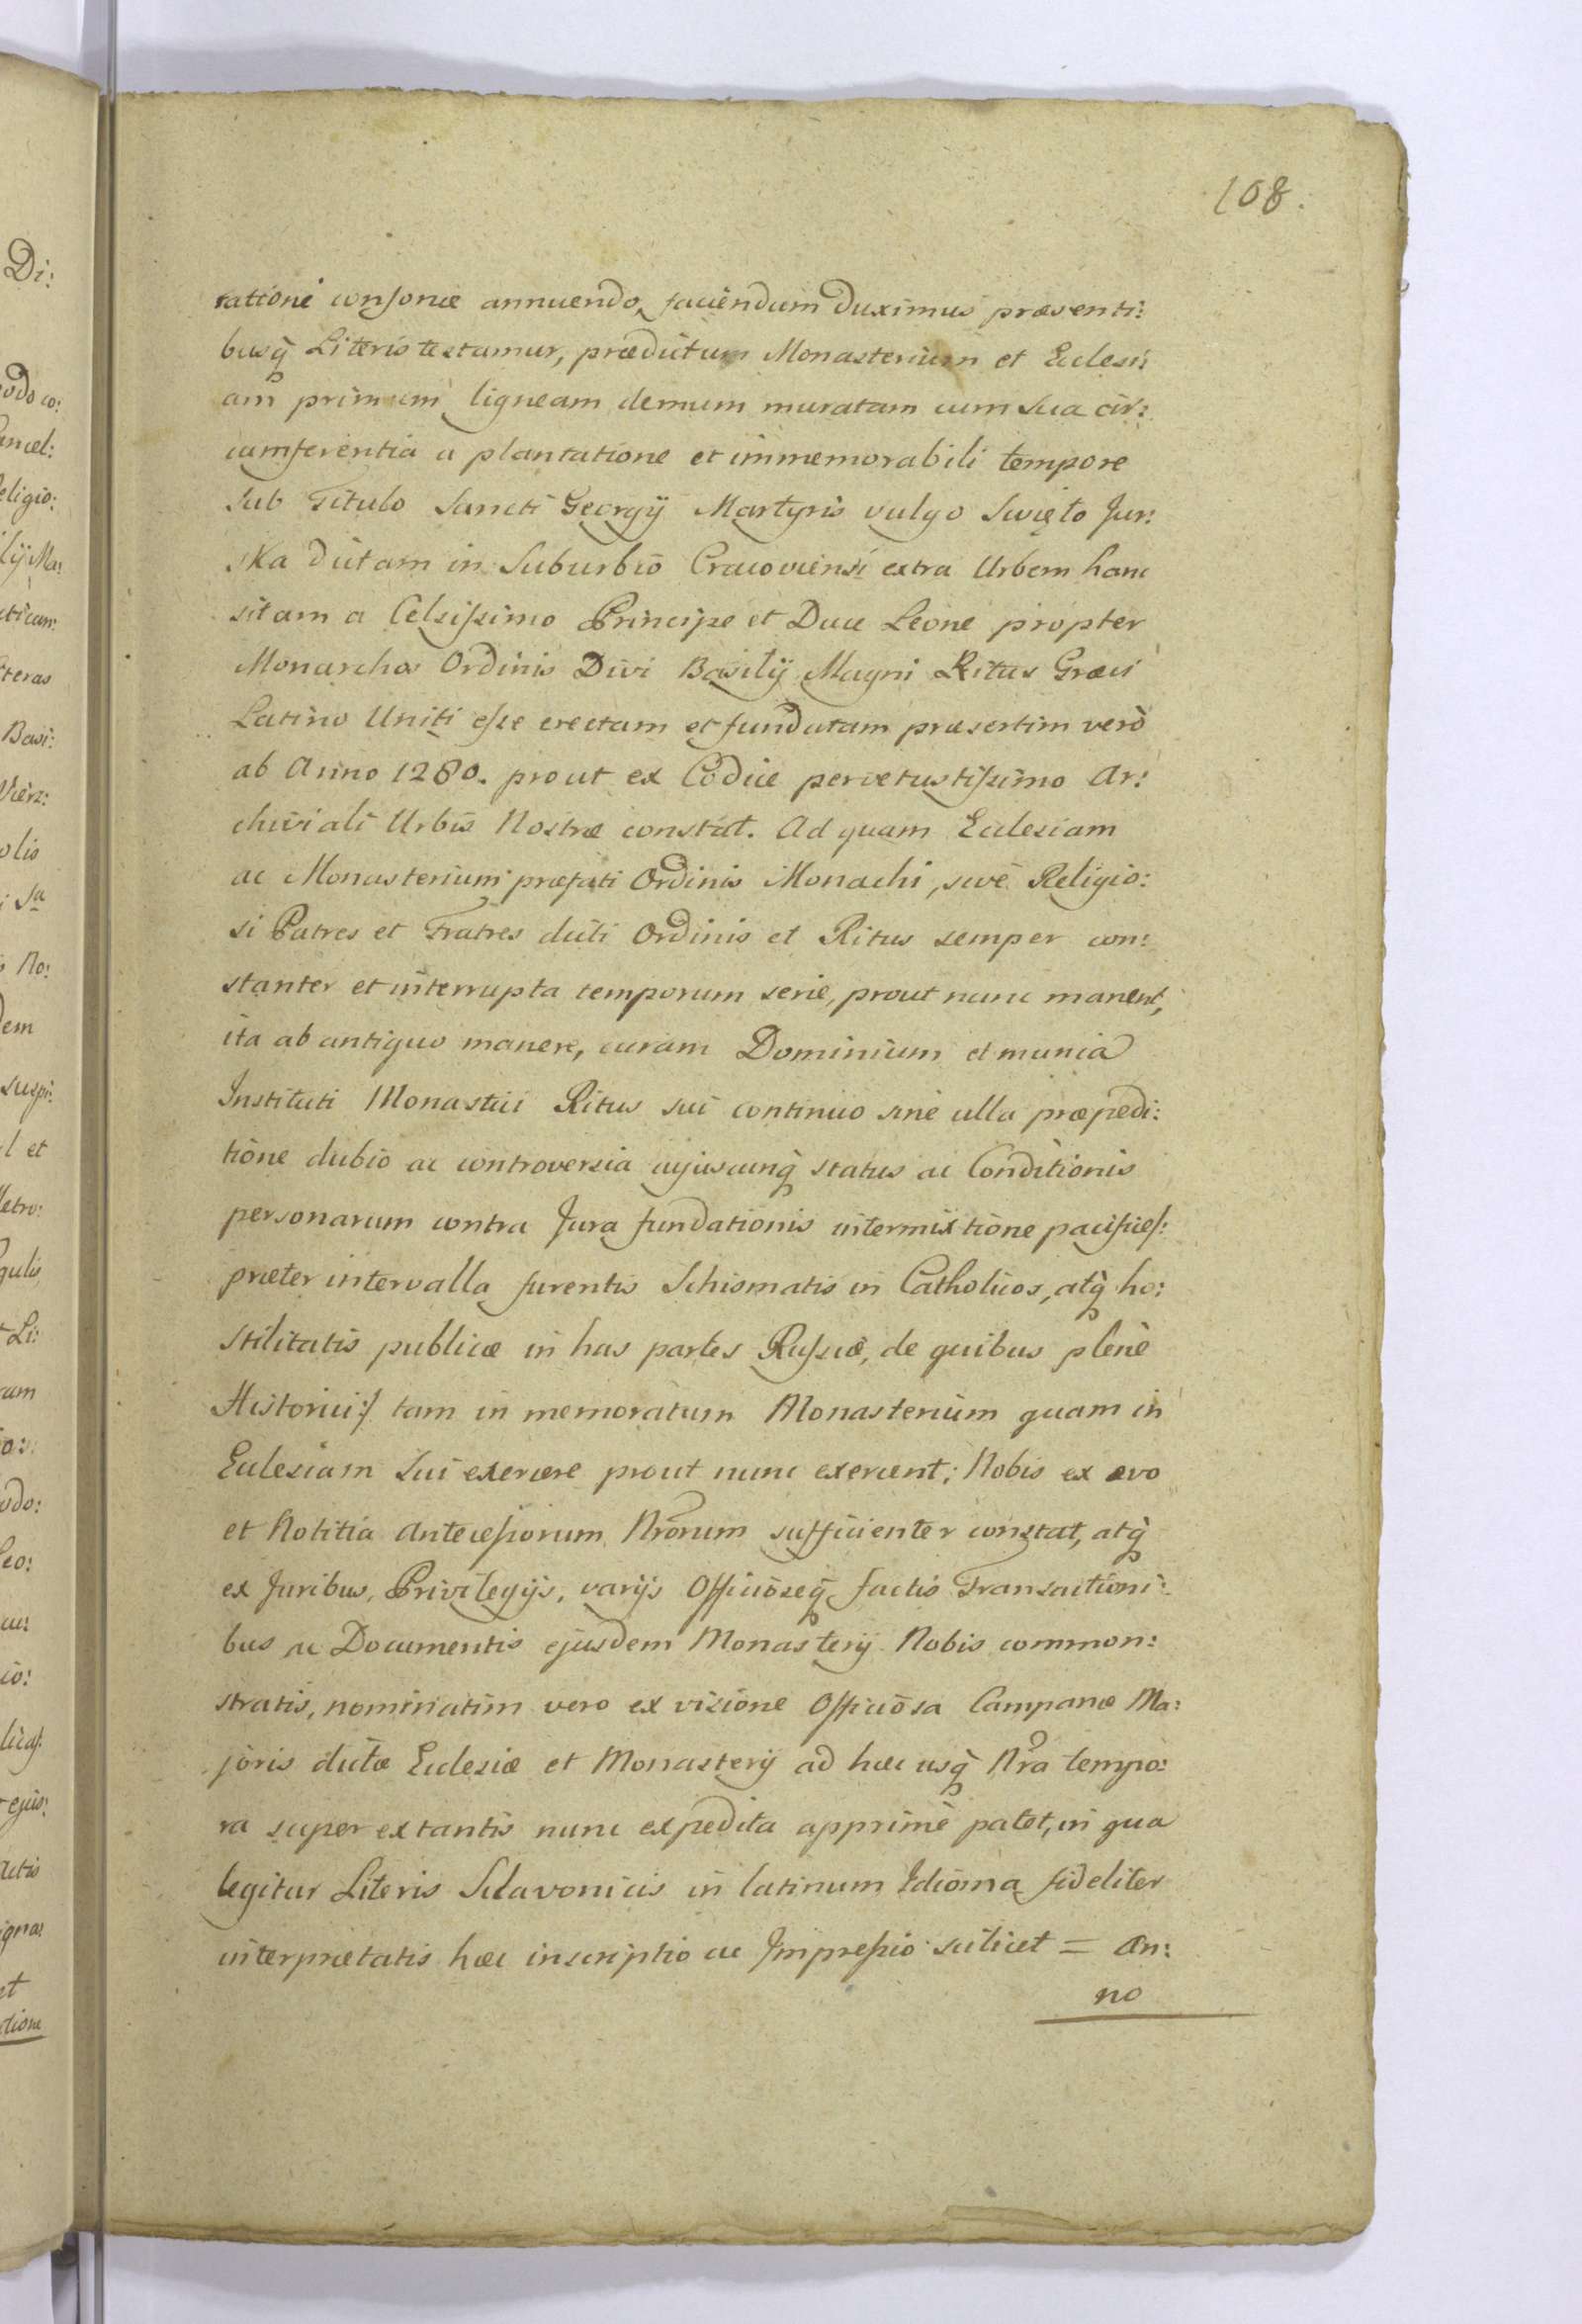 108.
rationi consonæ annuendo, faciendum Duximus præsenti:
busq̀ Literis testamur, prædictum Monasterium et Ecclesi:
am primum ligneam demum muratam cum sua cir:
cumferentia a plantatione et immemorabili tempore
sub Titulo Sancti Georgÿ Martyris vulgo Swięto Jur:
ska dictam in Suburbio Cracoviensi extra Urbem hanc
sitam a Celsissimo Principe et Duce Leone propter
Monarchos Ordinis Divi Basilÿ Magni Ritus Græci
Latino Uniti esse erectam et fundatam præsertim verò
ab Anno 1280. prout ex Codice pervetustissimo Ar:
chiviali Urbis Nostræ constat. Ad quam Ecclesiam
ac Monasterium præfati Ordinis Monachi, sive Religio:
si Patres et Fratres dicti Ordinis et Ritus semper con:
stanter et interrupta temporum serie, prout nunc manent,
ita ab antiquo manere, curam Dominium et munia
Instituti Monastici Ritus sui continuo sine ulla præpedi:
tione dubio ac controversia cujuscunq̀ status ac Conditionis
personarum contra Jura fundationis intermixtione pacifice/:
præter intervalla furentis Schismatis in Catholicos, atq̀ ho:
stilitatis publicæ in has partes Russiæ, de quibus plenè
Historici:/ tam in memoratum Monasterium quam in
Ecclesiam sui exercere prout nunc exercent; Nobis ex ævo
et Notitia Antecessorum Nrõrum sufficienter constat, atq̀
ex Juribus, Privilegÿs, varÿs Officioseq̀ factis Transactioni:
bus ac Documentis ejusdem Monasterÿ Nobis common:
stratis, nominatim vero ex visione Officiosa Campanæ Ma:
joris dictæ Ecclesiæ et Monasterÿ ad hæc usq̀ Nr̃a tempo:
ra super extantis nunc expedita apprimè patet, in qua
legitur Literis Sclavonicis in latinum Idioma fideliter
interprætatis hæc inscriptio ac Impressio scilicet = An:
no
Di:
odo co:
ancel:
eligio:
lÿ Ma:
teras
Basi:
olis
No:
dem
suspi:
l et
etro:
gulis
Li:
odo:
Leo:
ejus:
actis